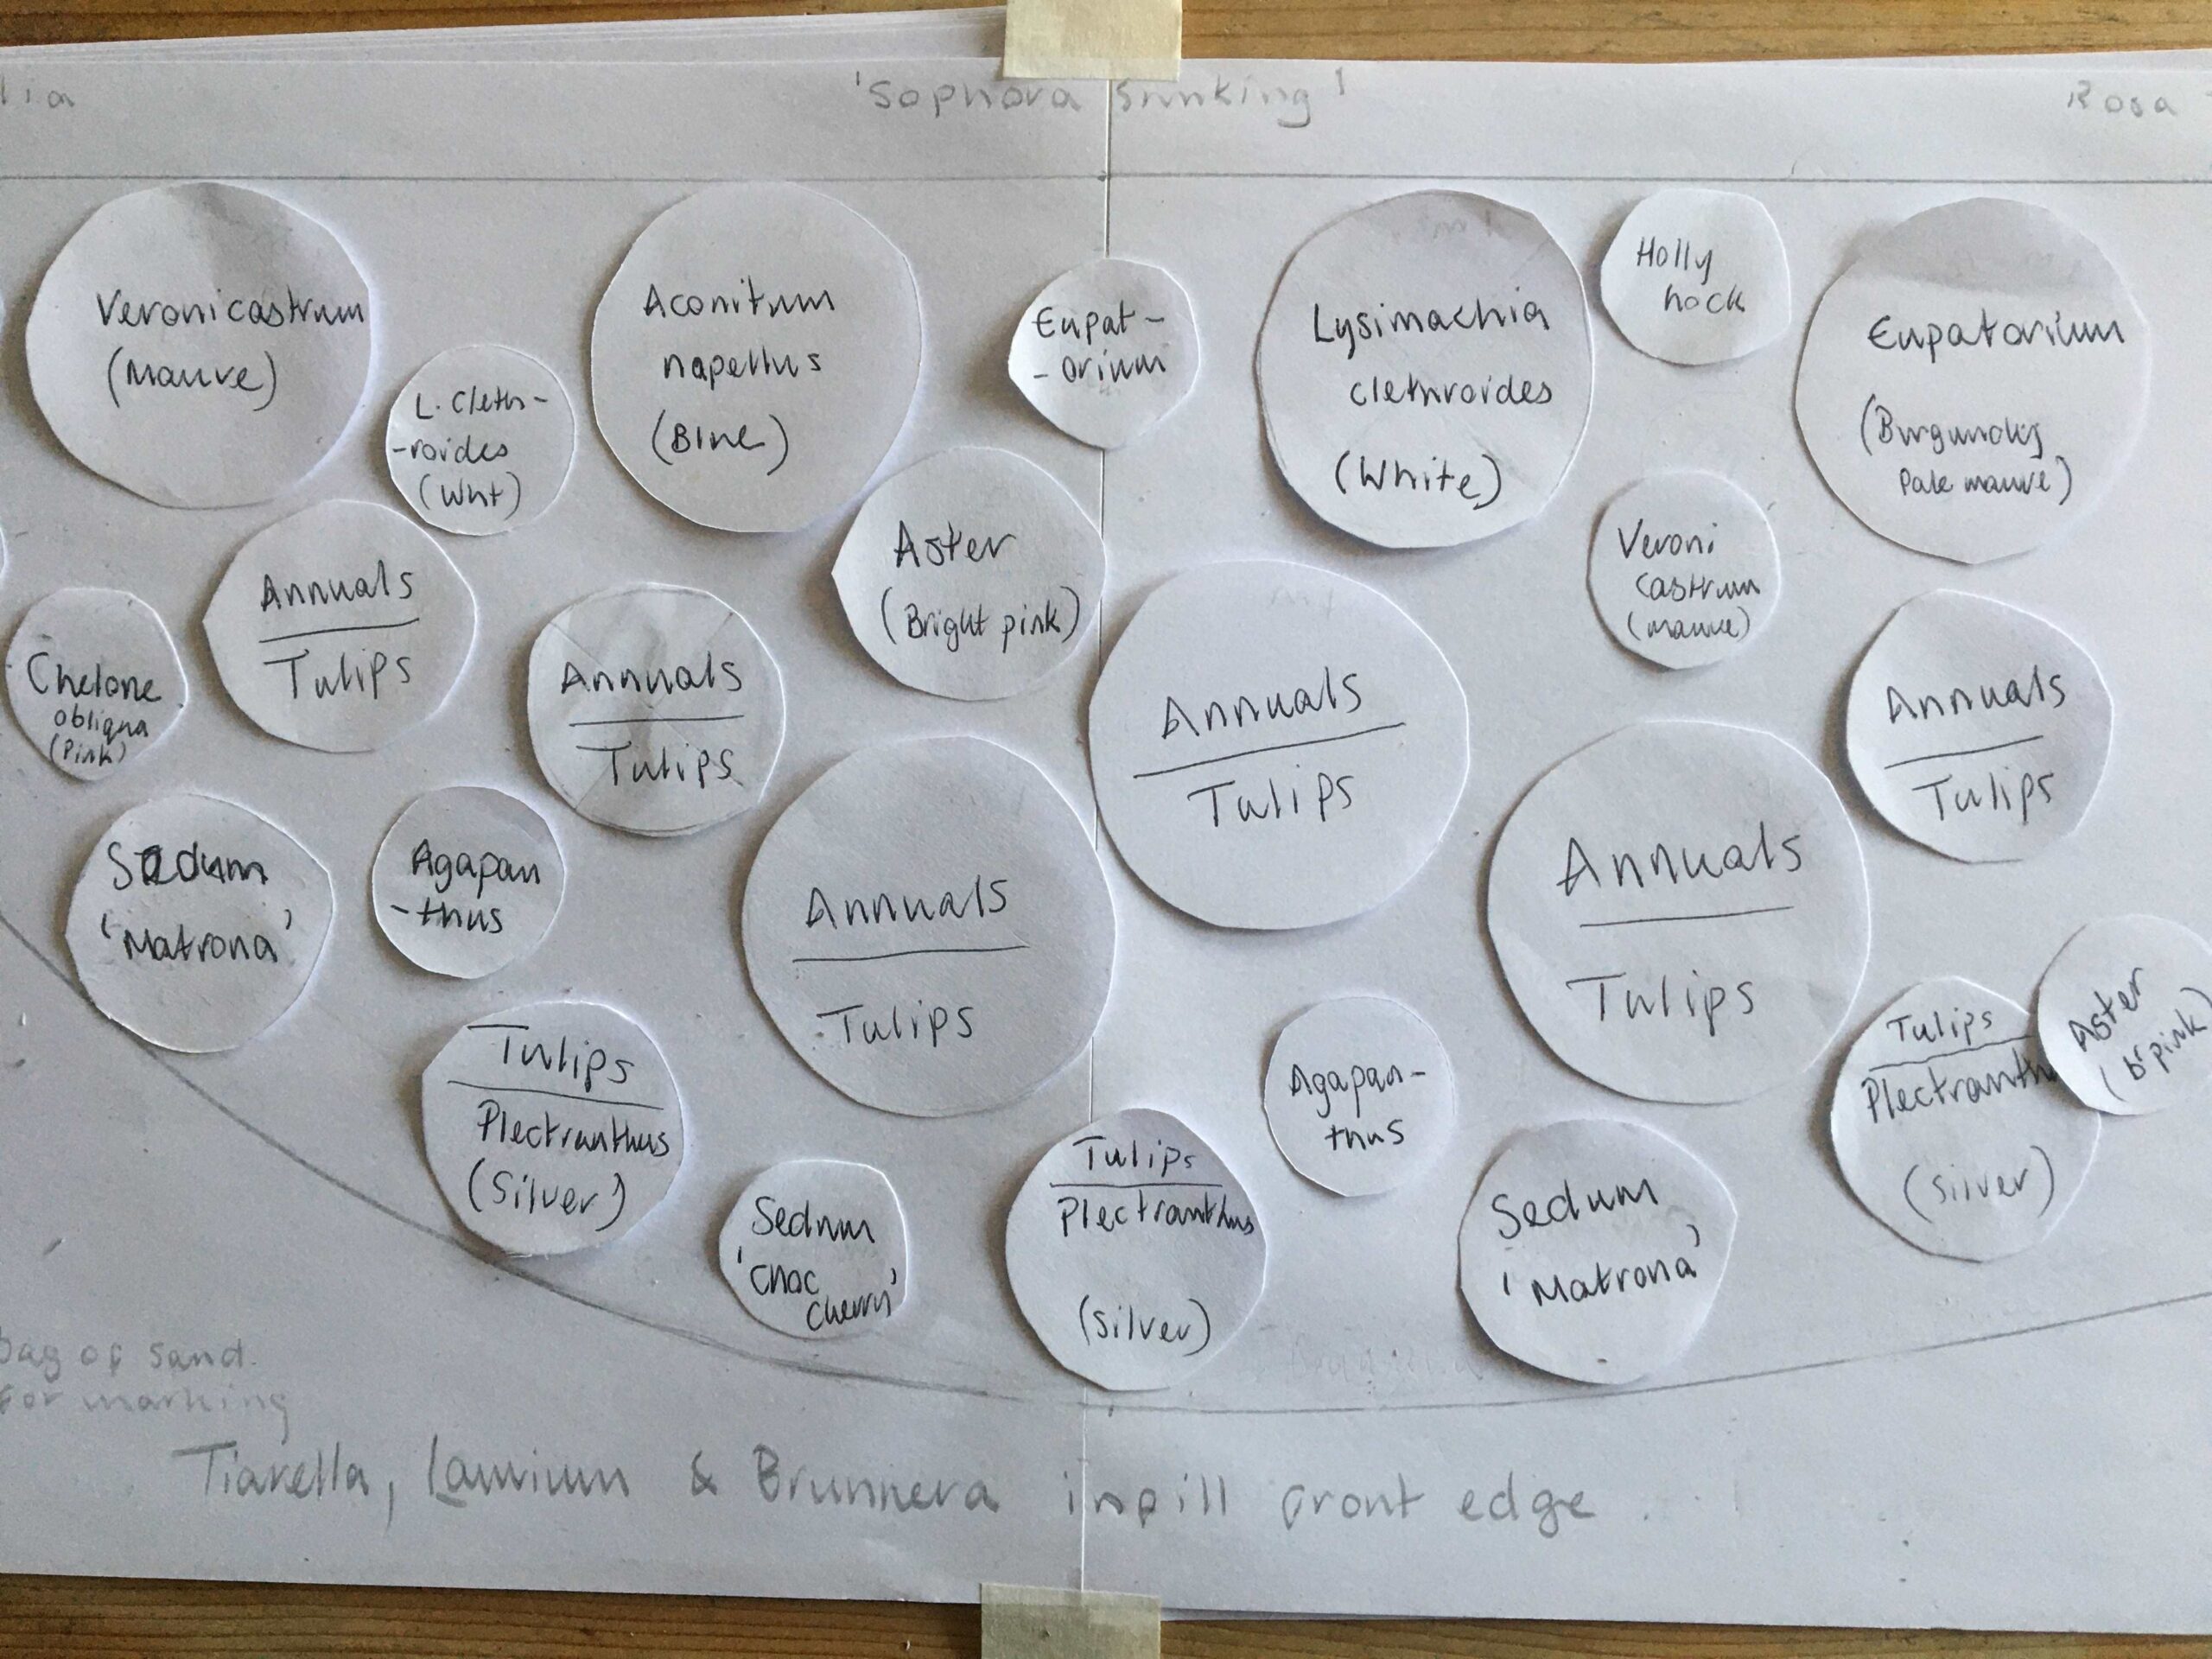 lia
'Sophora sunking'
Rosa
Veronicastrum
(Mauve)
L. Cleth-
-roides
(Wht)
Aconitum
napellus
(Blue)
Eupat-
-orium
Lysimachia
clethroides
(White)
Holly
hock
Eupatorium
(Burgundy
Pale mauve)
Aster
(Bright pink)
Veroni
castrum
(mauve)
Annuals
Tulips
Chelone
obliqua
(Pink)
Annuals
Tulips
Annuals
Tulips
Annuals
Tulips
Sedum
'Matrona'
Agapan
-thus
Annuals
Tulips
Annuals
Tulips
Tulips
Plectranthus
(Silver)
Sedum
'Choc
Cherry'
Tulips
Plectranthus
(Silver)
Agapan-
thus
Sedum
'Matrona'
Tulips
Plectranth
(Silver)
Aster
(br pink)
bag of sand.
for marking
Tiarella, Lamium & Brunnera infill front edge.